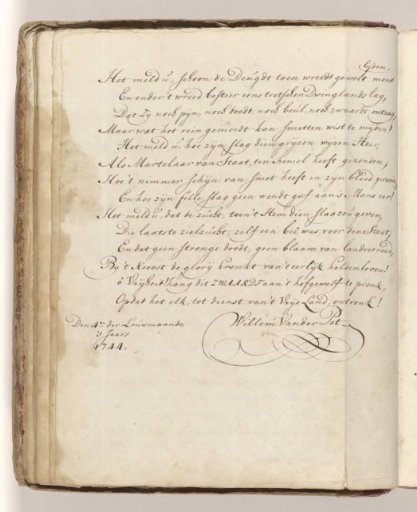 lyden,
Het meld u, schoon de Deugdt toen wreedt gewelt moest
En onder 't wreed bestier eens trotschen Dwinglands lag,
Dat zy noch pyn, noch doodt, noch beul, noch zwaardt ontzag,
Maar wat het rein gemoedt kan smetten wist te myden!
Het meld u hoe zyn slag dien gryzen wyzen Heer,
Als Martelaar van Staat, ten hemel heeft gezonden,
Hoe 't nimmer schyn van smet heeft in zyn bloed
En hoe zyn felle slag geen wondt gaf aan 's Mans eer!
Het meld u dat de zucht, toen 't Hem dien slag zou geven,
Die laatste zielzucht, zelf een beê was voor den Staat,
En dat geen strenge doodt, geen blaam van landverraad,
By 't Kroost de glory krenkt van 't eerlyk heldenleven!
ô Vryheit! hang dit ZWAARDT aan 't hofgewelf te pronk,
Opdat het elk, tot dienst van 't Vrye Land, ontvonk!
Den 4de der Louwmaandt
's Jaars
1744.
Willem Van der Pot